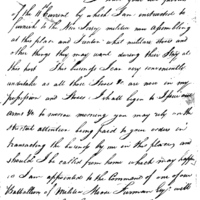 of the 11th Current by which I am instructed to
furnish to the New Jersey militia now assembling
at this place and Trenton what military stores and
other things they may want during their stay at
this post This business I can very conveniently
undertake as all those Stores &c are now in my
possession and those I shall begin to Issue
arms &c to morrow morning you may rely on the
strictest attention being paid to your orders in
transacting the business by me on this place and
should I be called from home which may happen
as I am appointed to the Command of one of our
Battallions of Militia Moore Furman Esqr will